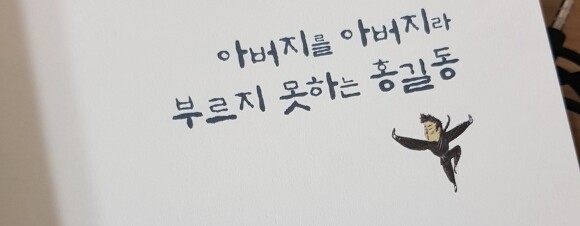 아버지를 아버지라
부르지 못하는 홍길동